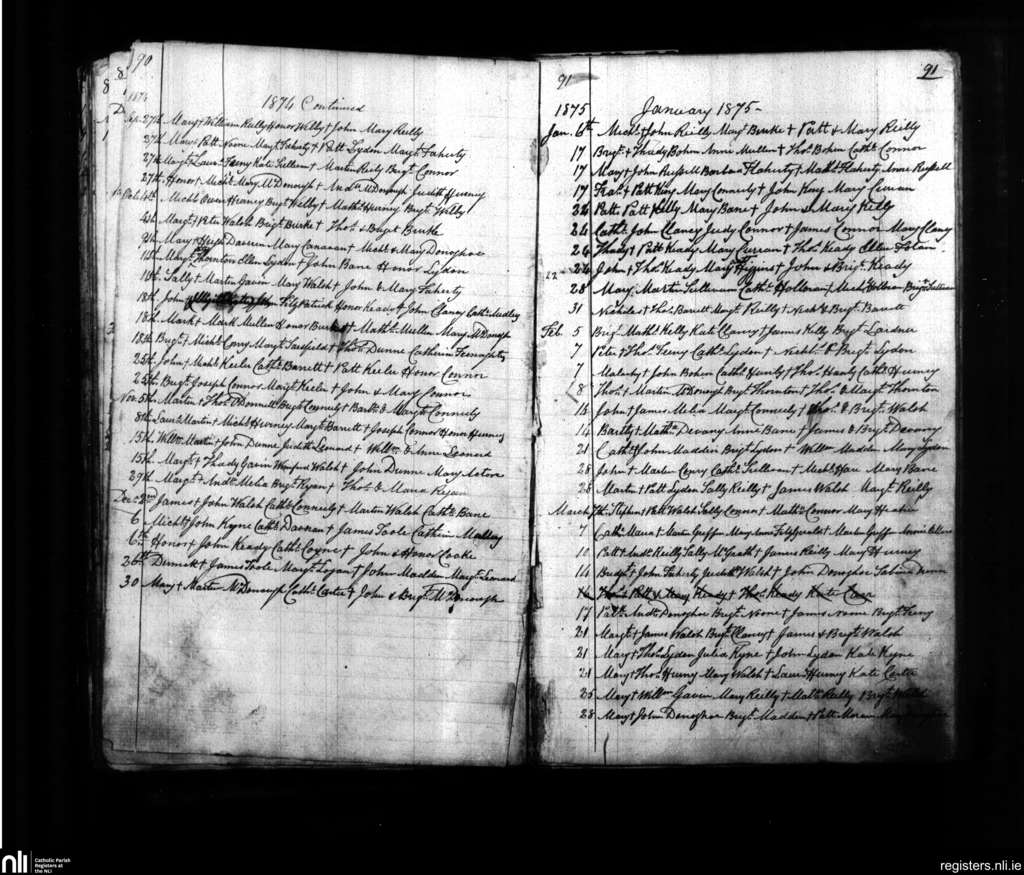 90
1874 Continued
1874
Sep. 27th Mary + William Reilly Honor Welby + John Mary Reilly
27th Mary + Patt Noone Margt Faherty + Patt Lydon Margt Faherty
27th Margt + Laur. Feeny Kate Sullivan + Martin Reily Brigt Connor
27th Honor + Michl Mary McDonogh + Andw McDonogh Judith Hurney
Octr 4th Michl Owen Heaney Brigt Welby + Mathw Hurney Brigt Welby
4th Margt + Peter Walsh Brigt Burke + Thos & Brigt Burke
9th Mary + Hugh Mary Canavan + Michl & Mary Donoghoe
11th Margt Thornton Ellen Lydon + John Bane Honor Lydon
16th Sally + Martin Gavin Mary Walsh + John & Mary Faherty
18th John Fitzpatrick Honor Keady + John Clancy Cathe
18th Mark + Mark Mullen Honor Burke + Mathw Mullen Mary McDonogh
18th Brigt + Michl Conry Margt + Thos Dunne Catherin
25th John + Michl Keelen Cathe Barrett + Patt Keelen Honor Connor
25th Brigt Joseph Connor Margt Keelen + John & Mary Connor
Nov. 8th Martin + Thos O'Donnell Brigt Connely + Bartw & Margt Connely
8th Laur. & Martin + Michl Hurney Margt Barrett + Joseph Connor Honor Hurney
15th Willm Martin + John Dunne Judith Leonard + Willm & Anne Leonard
15th Margt + Thady Gavin Winifred Walsh + John Dunne Mary
29th Margt + Andw Melia Brigt Ryan + Thos & Maria Ryan
Decr 2nd James + John Walsh Cathe Connely + Martin Walsh Cathe Bane
6 Michl + John Kyne Cathe + James Toole Catherin Malley
6th Honor + John Keady Cathe Coyne + John & Honor Cooke
26th + James Toole Margt + John Madden Margt Leonard
30 Mary + Martin McDonogh Cathe Carter + John & Brigt McDonogh
91
91
1875 January 1875-
Jan. 6th Michl + John Reilly Margt Burke + Patt & Mary Reilly
17 Brigt + Thady Bohen Anne Mullen + Thos Bohen Cathe Connor
17 Mary + John Russell Barbara Flaherty + Mathw Flaherty Anne Russell
17 + Patt King Mary Connely + John King Mary Curran
24 Patt Patt Kelly Mary Bane + John & Mary Kelly
24 Cathe John Clancy Judy Connor + James Connor Mary Clancy
24 Thady + Patt Keady Mary Curran + Thos Keady Ellen
24 John + Thos Keady Mary Higgins + John & Brigt Keady
22
28 Mary Martin Sullivan Cathe + Michl Brigt Sullivan
31 Nicholas + Thos Barrett Margt Reilly + Nich & Brigt Barrett
Feb 5 Brigt Mathw Kelly Kate Clancy + James Kelly Brigt Lardner
7 Peter + Thos Feeny Cathe Lydon + Nichl & Brigt Lydon
7 Malachy + John Bohen Cathe Hanly + Thos Hanly Cathe Hurney
8 Thos + Martin McDonogh Brigt Thornton + Thos & Margt Thornton
14 John + James Melia Margt Connely + Thos & Brigt Walsh
14 Bartly + Mathw Devany Anne Bane + James & Brigt Devany
21 Cathe + John Madden Brigt Lydon + Willm Madden Mary Lydon
28 John + Martin Conry Cathe Sullivan + Michl Mary Bane
28 Martin + Patt Lydon Sally Reilly + James Walsh Margt Reilly
March 7th Stephen + Patt Walsh Sally Connor + Mathw Connor Mary
7 Cathe Maria + Martin Griffin Mary Anne Fitzgerald + Martin Griff
10 Patt + Andw Reilly Sally McGrath + James Reilly Mary Hurney
14 Bridgt + John Faherty Judith Walsh + John Donoghoe Sabina
Thos Patt & Mary Keady + Thos Keady Kate
17 Patt Andw Donoghoe Brigt Noone + James Noone Brigt Feeny
21 Margt + James Walsh Brigt Clancy + James & Brigt Walsh
21 Mary + Thos Lydon Julia Kyne + John Lydon Kate Kyne
21 Mary + Thos Hurney Mary Walsh + Laur. Hurney Kate Carter
25 Mary + Willm Gavin Mary Reilly + Mathw Reilly Brigt
28 Mary + John Donoghoe Brigt Madden + Patt
nli
Catholic Parish
Registers at
the NLI
registers.nli.ie